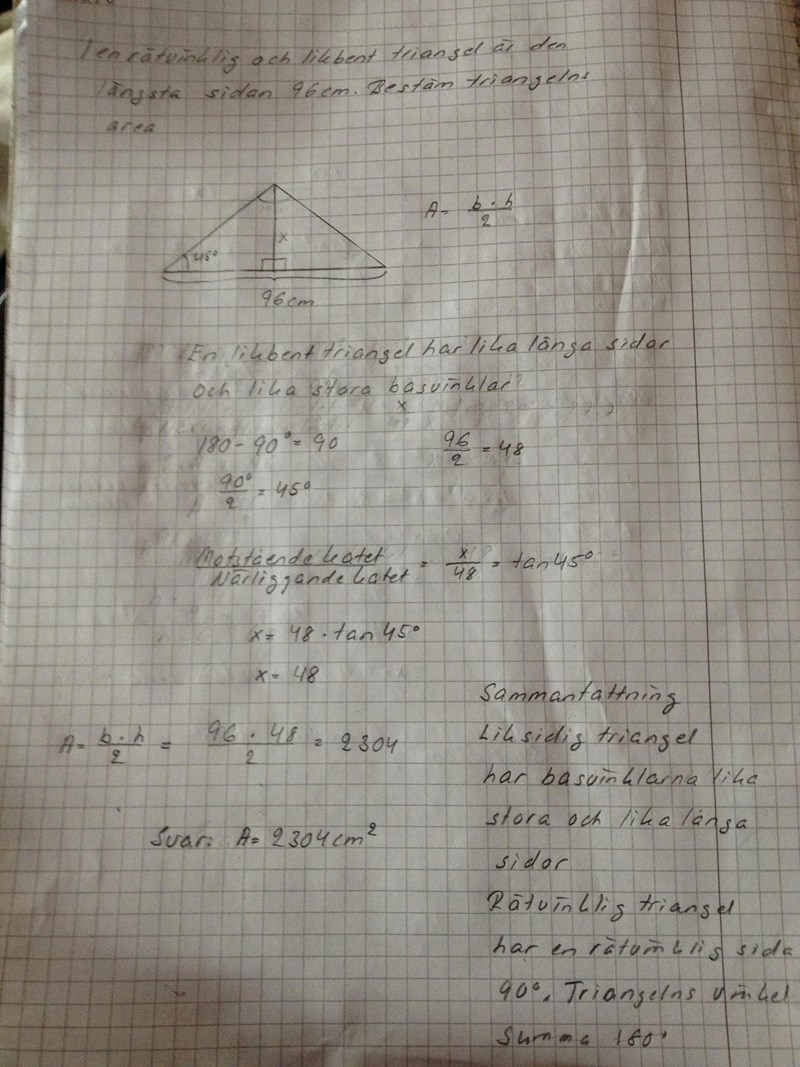 I en rätvinklig och likbent triangel är den
längsta sidan 96cm. Bestäm triangelns
area
A = b · h / 2
x
45°
96cm
En likbent triangel har lika långa sidor
och lika stora basvinklar
x
180 - 90° = 90
96 / 2 = 48
90° / 2 = 45°
Motstående katet / Närliggande katet = x / 48 = tan 45°
x = 48 · tan 45°
x = 48
A = b · h / 2 = 96 · 48 / 2 = 2304
Svar: A = 2304 cm²
Sammanfattning
Liksidig triangel
har basvinklarna lika
stora och lika långa
sidor
Rätvinklig triangel
har en rätvinklig sida
90°. Triangelns vinkel
Summa 180°